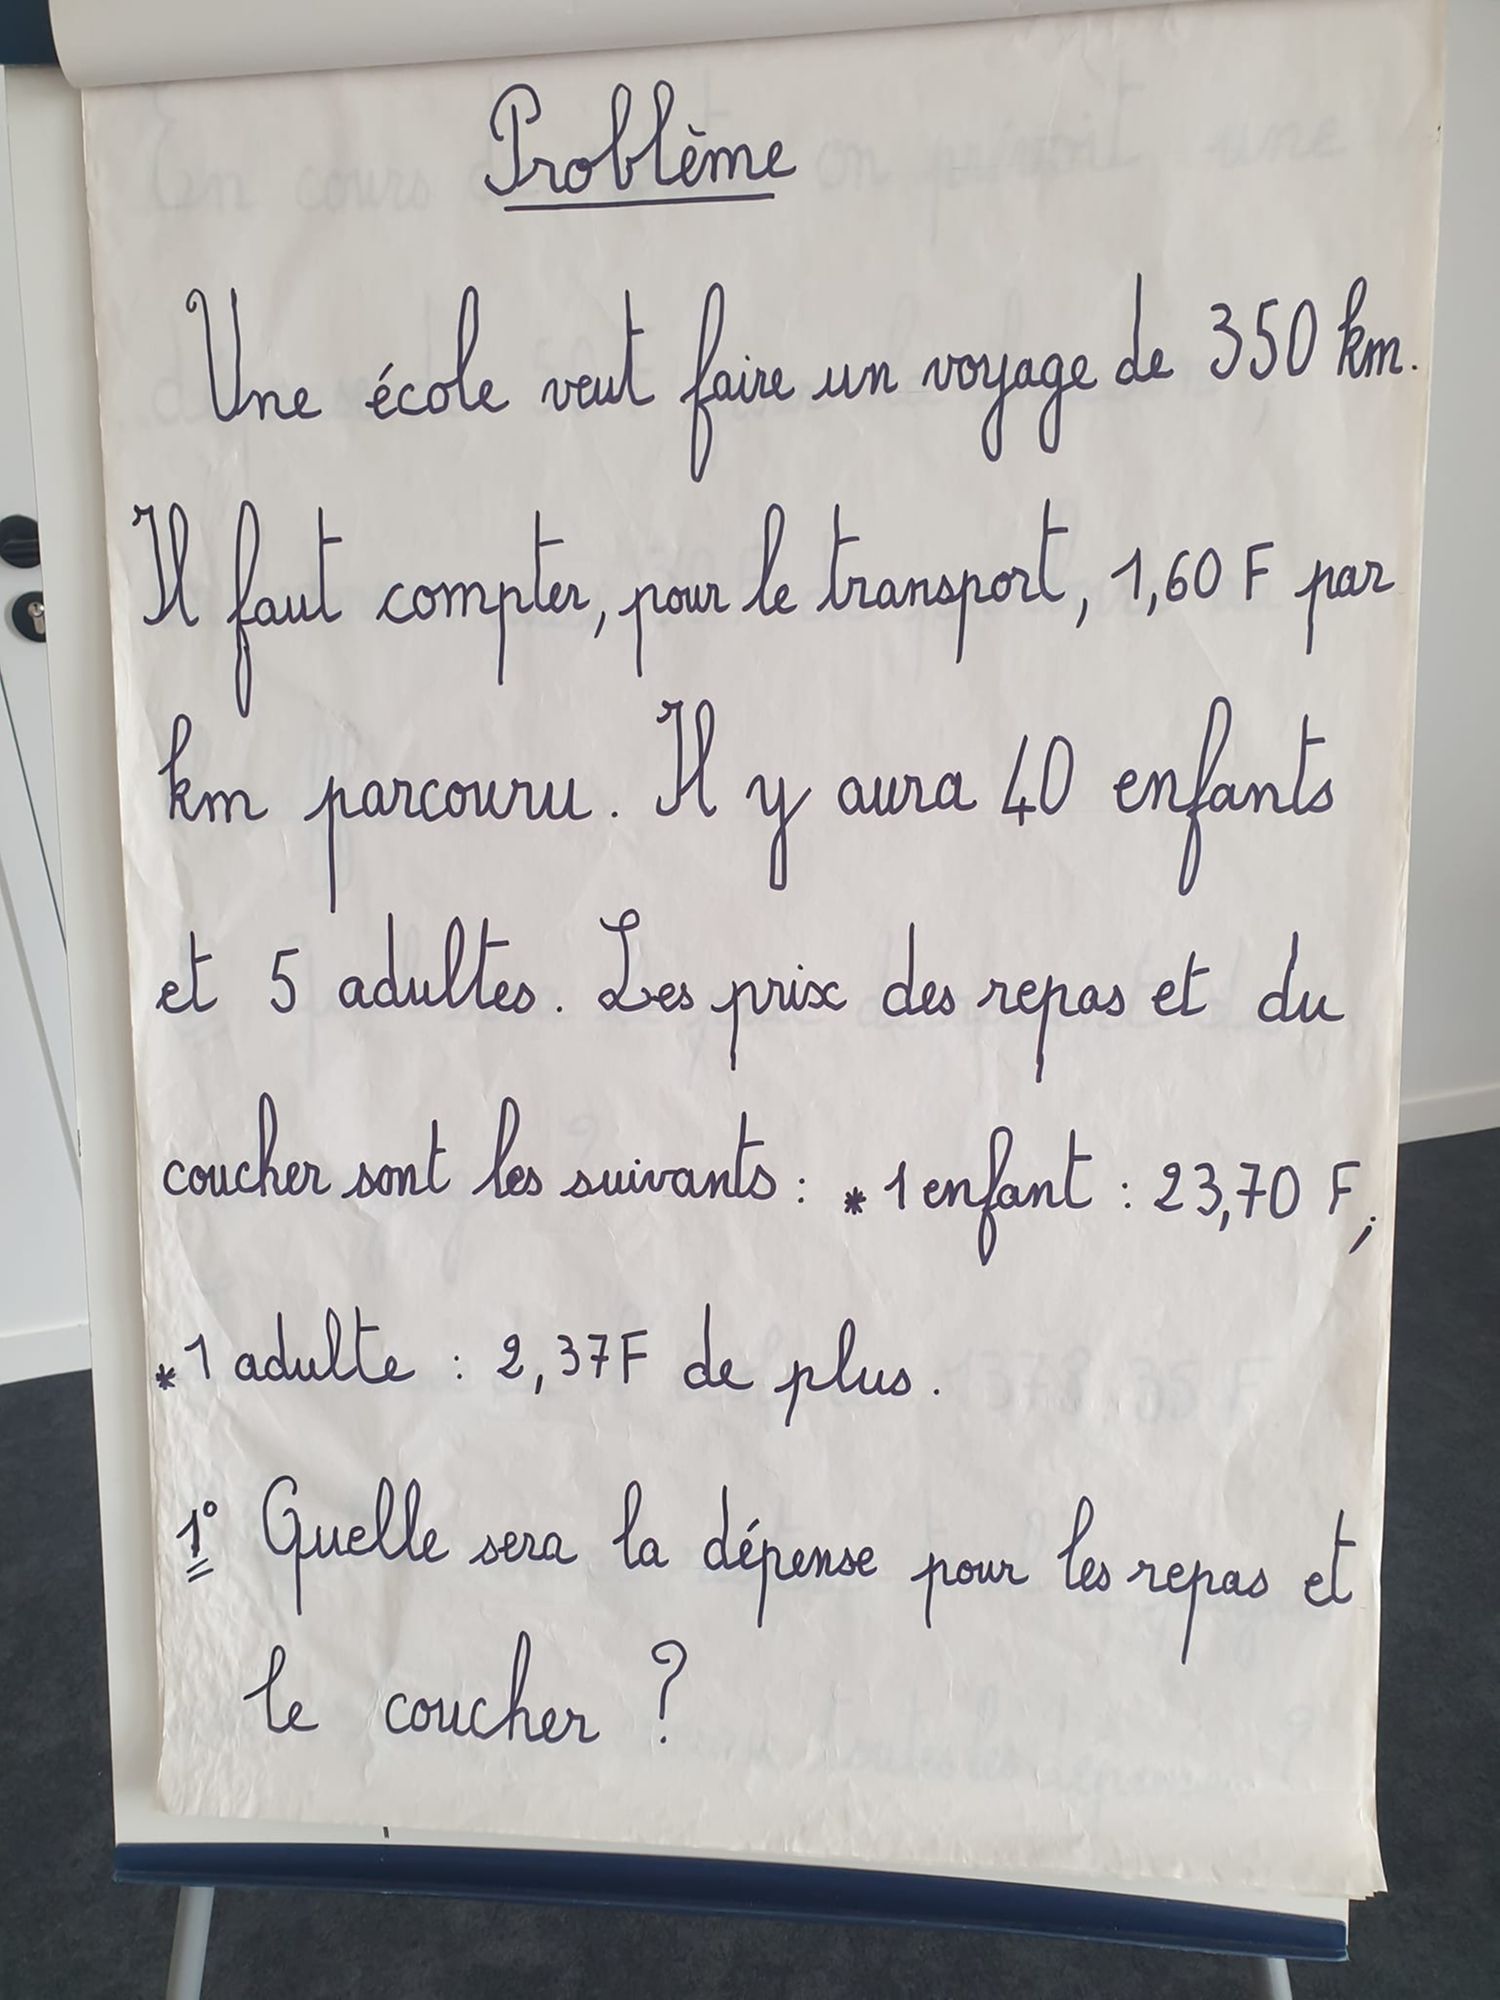 Problème
Une école veut faire un voyage de 350 km.
Il faut compter, pour le transport, 1,60 F par
km parcouru. Il y aura 40 enfants
et 5 adultes. Les prix des repas et du
coucher sont les suivants : * 1 enfant : 23,70 F ;
* 1 adulte : 2,37 F de plus.
1° Quelle sera la dépense pour les repas et
le coucher ?